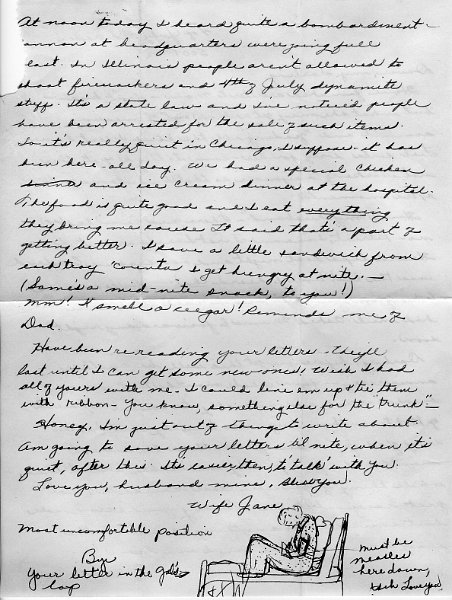 At noon today I heard quite a bombardment -
annon at headquarters were going full
last. In Illinois people aren't allowed to
shoot firecrackers and 4th of July dynamite
stuff. It's a state law and I've noticed people
have been arrested for the sale of such items.
So it's really quiet in Chicago, I suppose - it has
been here all day. We had a special chicken
and ice cream dinner at the hospital.
The food is quite good and I eat everything
they bring me cause Lt said that's a part of
getting better. I save a little sandwich from
each tray 'counta I get hungry at nite. -
(Same as a mid-nite snack, to you!)
Mm! I smell a ceegar! Reminds me of
Dad.
Have been re-reading your letters - They'll
last until I can get some new ones! Wish I had
all of yours with me. I could line em up & tie them
with ribbon - You know, something else for the "trunk" -
Honey, I'm just out of things to write about.
Am going to save your letters til nite, when it's
quiet, after this. It's easier, then, to 'talk' with you.
Love you, husband mine, I bless you.
Wife Jane
Most uncomfortable position
By
Your letter in the
lap
must be
measles
here down,
Love you